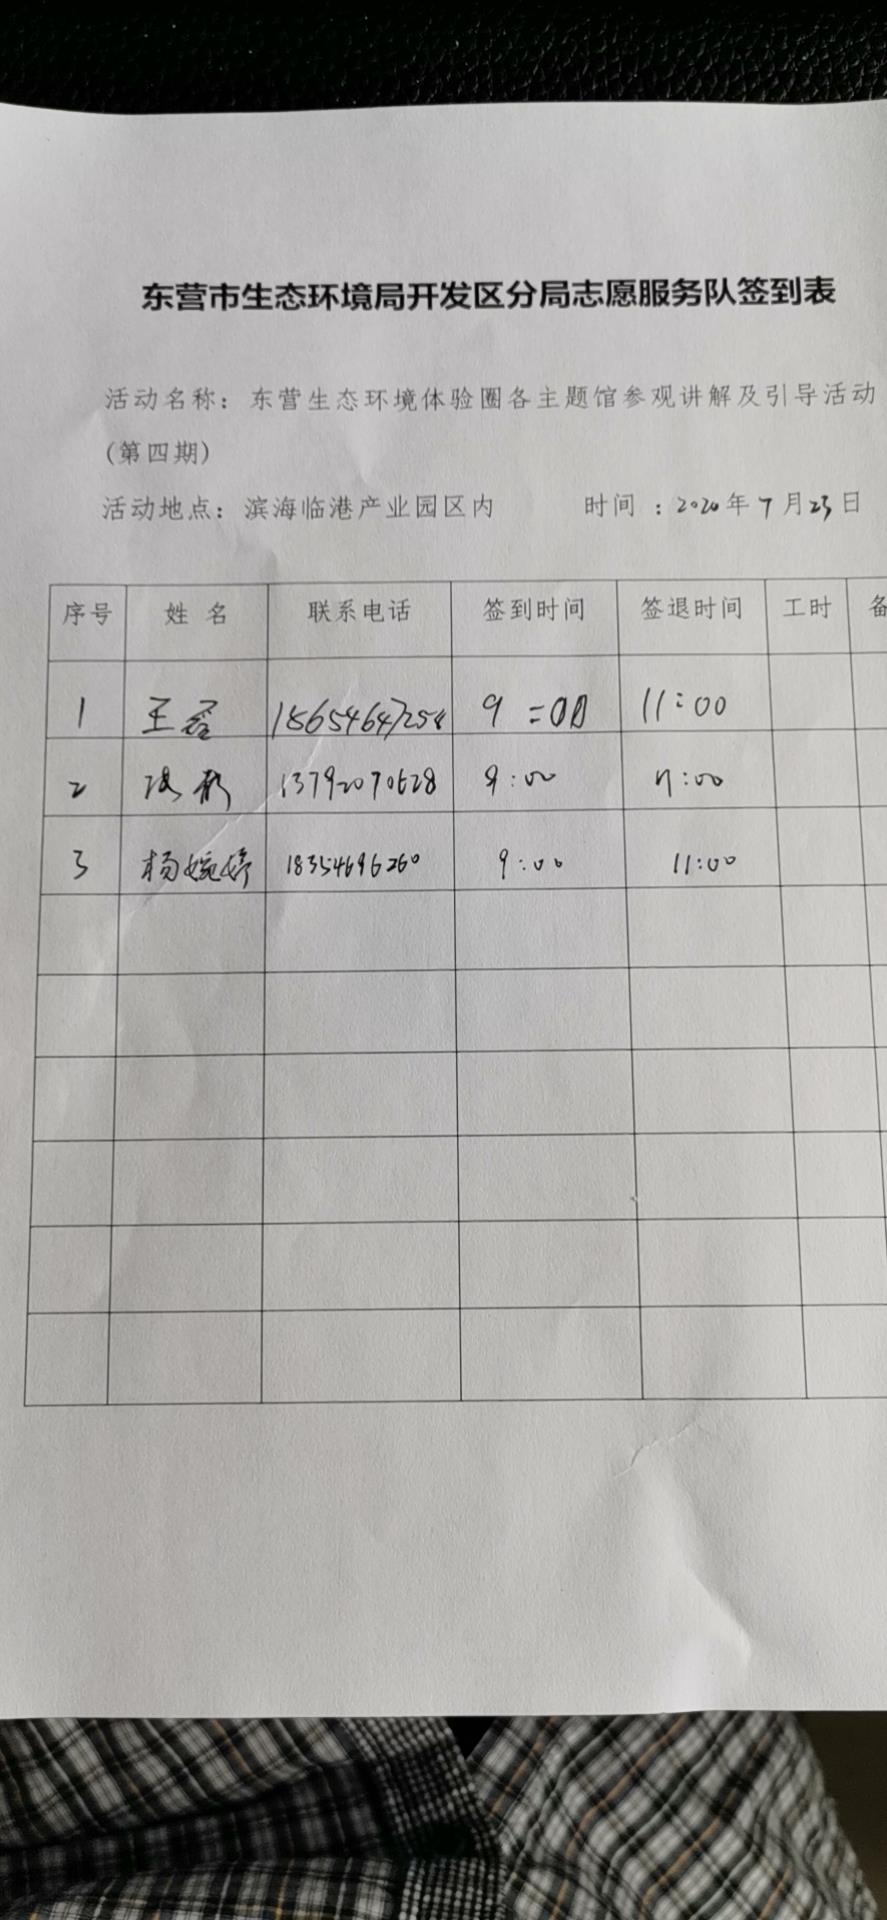 东营市生态环境局开发区分局志愿服务队签到表
活动名称：东营生态环境体验圈各主题馆参观讲解及引导活动
(第四期)
活动地点：滨海临港产业园区内 时间：2020年7月23日
序号 姓名 联系电话 签到时间 签退时间 工时 备
1 王 1865464725 9:00 11:00
2 13792070628 9:00 11:00
3 杨婉婷 18354696260 9:00 11:00